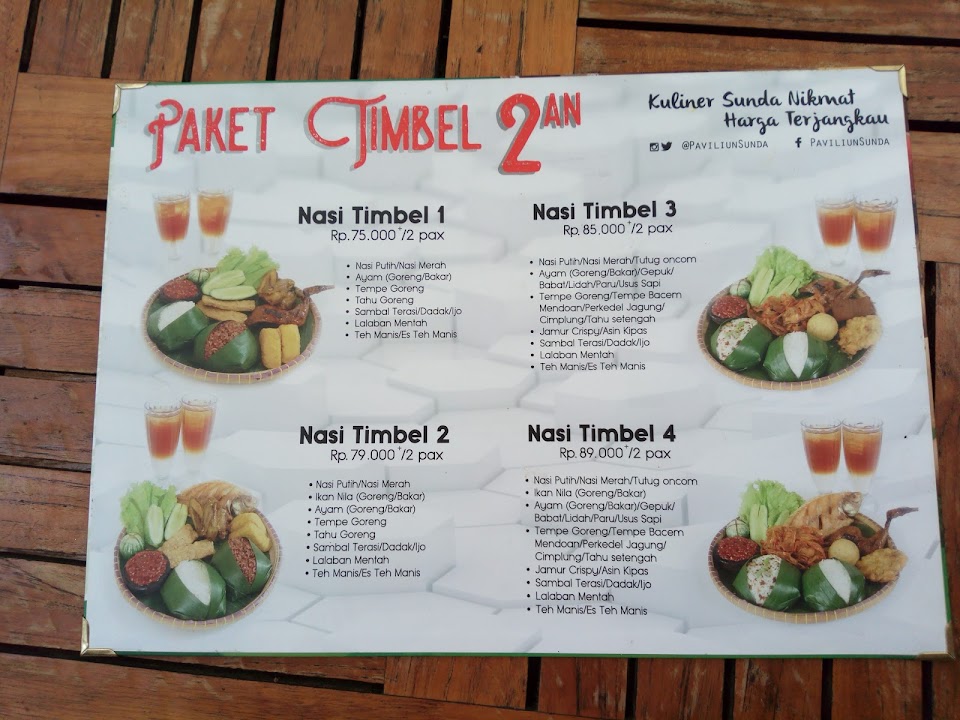 PAKET TIMBEL 2AN
Kuliner Sunda Nikmat
Harga Terjangkau
@PAVILIUNSUNDA PAVILIUNSUNDA
Nasi Timbel 1
Rp.75.000+/2 pax
• Nasi Putih/Nasi Merah
• Ayam (Goreng/Bakar)
• Tempe Goreng
• Tahu Goreng
• Sambal Terasi/Dadak/Ijo
• Lalaban Mentah
• Teh Manis/Es Teh Manis
Nasi Timbel 2
Rp.79.000+/2 pax
• Nasi Putih/Nasi Merah
• Ikan Nila (Goreng/Bakar)
• Ayam (Goreng/Bakar)
• Tempe Goreng
• Tahu Goreng
• Sambal Terasi/Dadak/Ijo
• Lalaban Mentah
• Teh Manis/Es Teh Manis
Nasi Timbel 3
Rp.85.000+/2 pax
• Nasi Putih/Nasi Merah/Tutug oncom
• Ayam (Goreng/Bakar)/Gepuk/
Babat/Lidah/Paru/Usus Sapi
• Tempe Goreng/Tempe Bacem
Mendoan/Perkedel Jagung/
Cimplung/Tahu setengah
• Jamur Crispy/Asin Kipas
• Sambal Terasi/Dadak/Ijo
• Lalaban Mentah
• Teh Manis/Es Teh Manis
Nasi Timbel 4
Rp.89.000+/2 pax
• Nasi Putih/Nasi Merah/Tutug oncom
• Ikan Nila (Goreng/Bakar)
• Ayam (Goreng/Bakar)/Gepuk/
Babat/Lidah/Paru/Usus Sapi
• Tempe Goreng/Tempe Bacem
Mendoan/Perkedel Jagung/
Cimplung/Tahu setengah
• Jamur Crispy/Asin Kipas
• Sambal Terasi/Dadak/Ijo
• Lalaban Mentah
• Teh Manis/Es Teh Manis